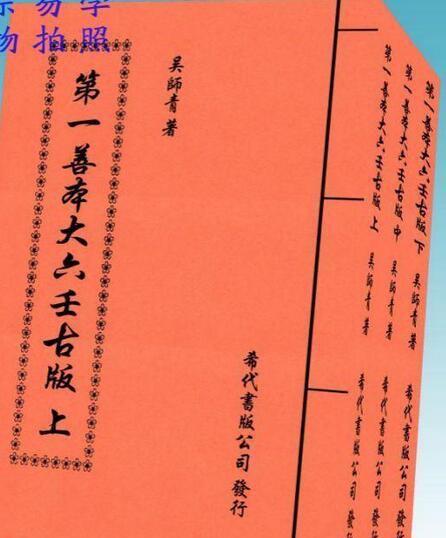 易學
物拍照
吳師青著
第一善本大六壬古版 上
希代書版公司 發行
第一善本大六壬古版 上 吳師青著 希代書版公司 發行
第一善本大六壬古版 中 吳師青著 希代書版公司 發行
第一善本大六壬古版 下 吳師青著 希代書版公司 發行